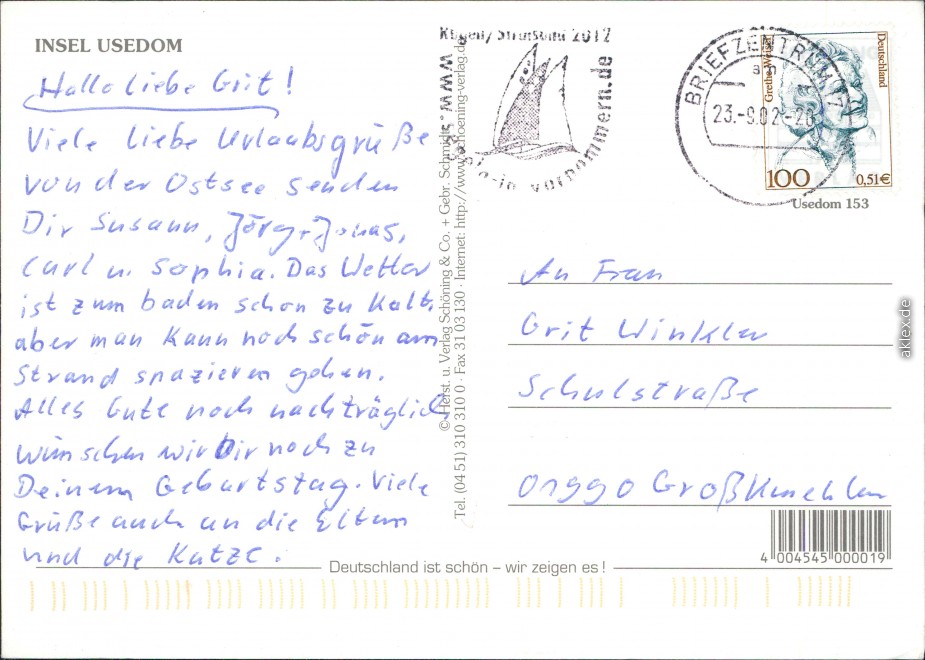 INSEL USEDOM
Hallo liebe Grit!
Viele liebe Urlaubsgrüße
von der Ostsee senden
Dir Susann, Jörg, Jonas,
Carl u. Sophia. Das Wetter
ist zum baden schon zu kalt,
aber man kann noch schön am
Strand spazieren gehen.
Alles Gute noch nachträglich
wünschen wir Dir noch zu
Deinem Geburtstag. Viele
Grüße auch an die Eltern
und die Katze.
© Herst. u. Verlag Schöning & Co. + Gebr. Schmidt
Tel. (04 51) 310 310 0 · Fax 31 03 130 · Internet: http://www.schoening-verlag.de
2012
vorpommern.de
BRIEFZENTRUM 17
an
23.-9.02.-20
Grethe Weiser
Deutschland
100 0,51€
Usedom 153
An Frau
Grit Winkler
Schulstraße
01990 Großkmehlen
4 004545 000019
Deutschland ist schön – wir zeigen es!
aklex.de